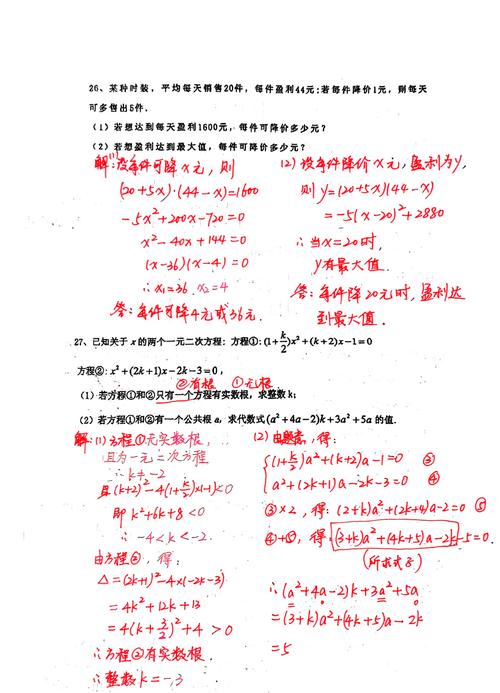 26、某种时装，平均每天销售20件，每件盈利44元;若每件降价1元，则每天
可多售出5件.
（1）若想达到每天盈利1600元，每件可降价多少元？
（2）若想盈利达到最大值，每件可降价多少元？
解:(1)设每件可降x元，则
(20+5x)·(44-x)=1600
-5x²+200x-720=0
x²-40x+144=0
(x-36)(x-4)=0
∴x₁=36 x₂=4
答:每件可降4元或36元.
(2) 设每件可降价x元,盈利为y,
则 y=(20+5x)(44-x)
=-5(x-20)²+2880
∴当x=20时,
y有最大值.
答:每件降20元时,盈利达
到最大值.
27、已知关于 x 的两个一元二次方程: 方程①: (1+k/2)x²+(k+2)x-1=0
方程②: x²+(2k+1)x-2k-3=0,
②有根 ①无根
(1) 若方程①和②只有一个方程有实数根，求整数 k;
(2) 若方程①和②有一个公共根 a, 求代数式(a²+4a-2)k+3a²+5a 的值.
解:(1)方程①无实数根,
且为一元二次方程
∴k≠-2
且(k+2)²-4(1+k/2)×(-1)<0
即 k²+6k+8<0
∴-4<k<-2.
由方程②,得:
△=(2k+1)²-4×(-2k-3)
=4k²+12k+13
=4(k+3/2)²+4>0
∴方程②有实数根.
∴整数k=-3
(2)由题意,得:
(1+k/2)a²+(k+2)a-1=0 ③
a²+(2k+1)a-2k-3=0 ④
③×2,得:(2+k)a²+(2k+4)a-2=0 ⑤
④+⑤,得:(3+k)a²+(4k+5)a-2k-5=0.
(所求式子)
∴(a²+4a-2)k+3a²+5a
=(3+k)a²+(4k+5)a-2k
=5